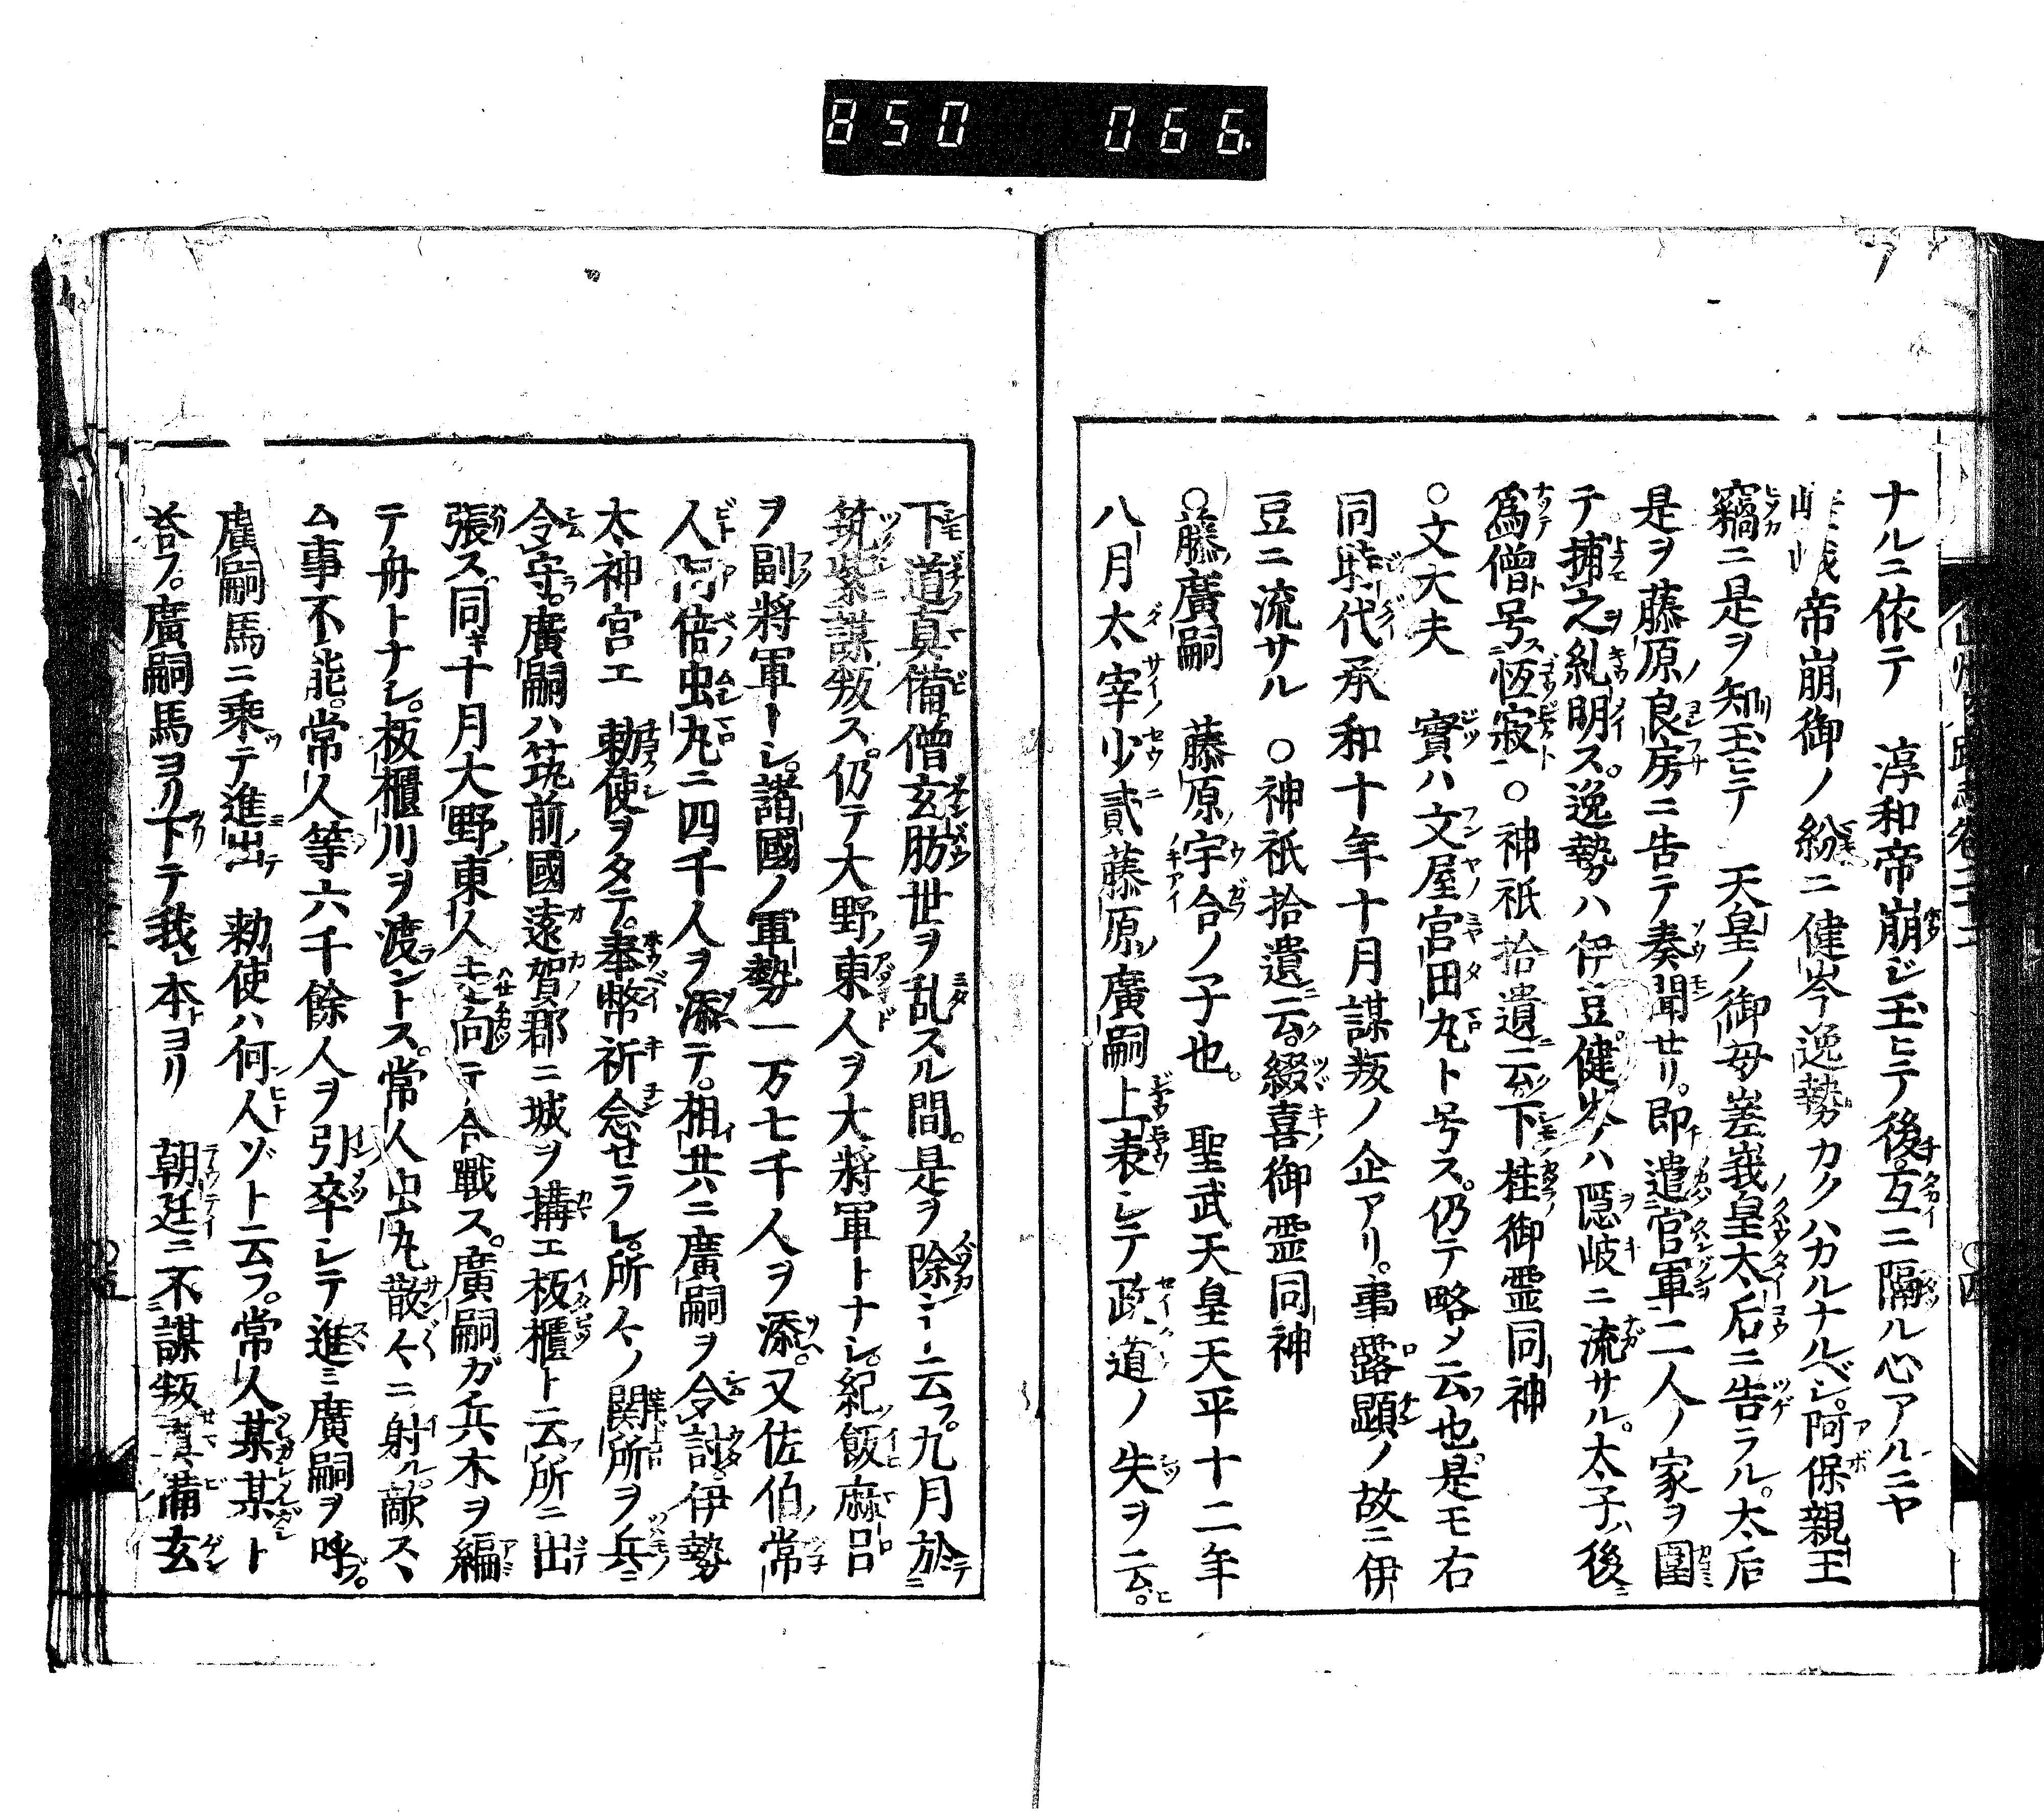 850 066
ナルニ依テ 淳和帝崩ジ玉ヒテ後互ニ隔ル心アルニヤ
帝崩御ノ紛ニ健岑逸勢カクハカルナルベシ。阿保親王
竊ニ是ヲ知玉ヒテ 天皇ノ御母嵳峩皇太后ニ告ラル。太后
是ヲ藤原良房ニ告テ奏聞せリ。即遣官軍二人ノ家ヲ圍
テ捕之糺明ス。逸勢ハ伊豆健岑ハ隠岐ニ流サル。太子ハ後
爲僧号恆寂 ○神祇拾遺云下桂御霊同神
○文大夫 實ハ文屋宮田丸ト号ス。仍テ略メ云也是モ右
同時代承和十年十月謀叛ノ企アリ。事露顕ノ故ニ伊
豆ニ流サル ○神祇拾遺云綴喜御霊同神
○藤廣嗣 藤原宇合ノ子也。 聖武天皇天平十二年
八月太宰少貳藤原廣嗣上表シテ政道ノ失ヲ云。
下道真備僧玄肪世ヲ乱スル間。是ヲ除ント云フ。九月於
筑紫謀叛ス。仍テ大野東人ヲ大将軍トナシ。紀飯麻呂
ヲ副将軍トシ。諸國ノ軍勢一万七千人ヲ添。又佐伯常
人阿倍虫丸ニ四千人ヲ添テ。相共ニ廣嗣ヲ令討伊勢
太神宮エ 勅使ヲタテ。奉幣祈念せラレ。所々ノ関所ヲ兵ニ
令守。廣嗣ハ筑前國遠賀郡ニ城ヲ搆エ板櫃ト云所ニ出
張ス。同キ十月大野東人 向テ合戰ス。廣嗣ガ兵木ヲ編
テ舟トナシ。板櫃川ヲ渡ントス。常人虫丸散々ニ射ル。敵スヽ
ム事不能。常人等六千餘人ヲ引卒シテ進ミ廣嗣ヲ呼。
廣嗣馬ニ乗テ進出 勅使ハ何人ゾト云フ。常人某某ト
荅フ。廣嗣馬ヨリ下テ我レ本ヨリ 朝廷ニ不謀叛真備玄